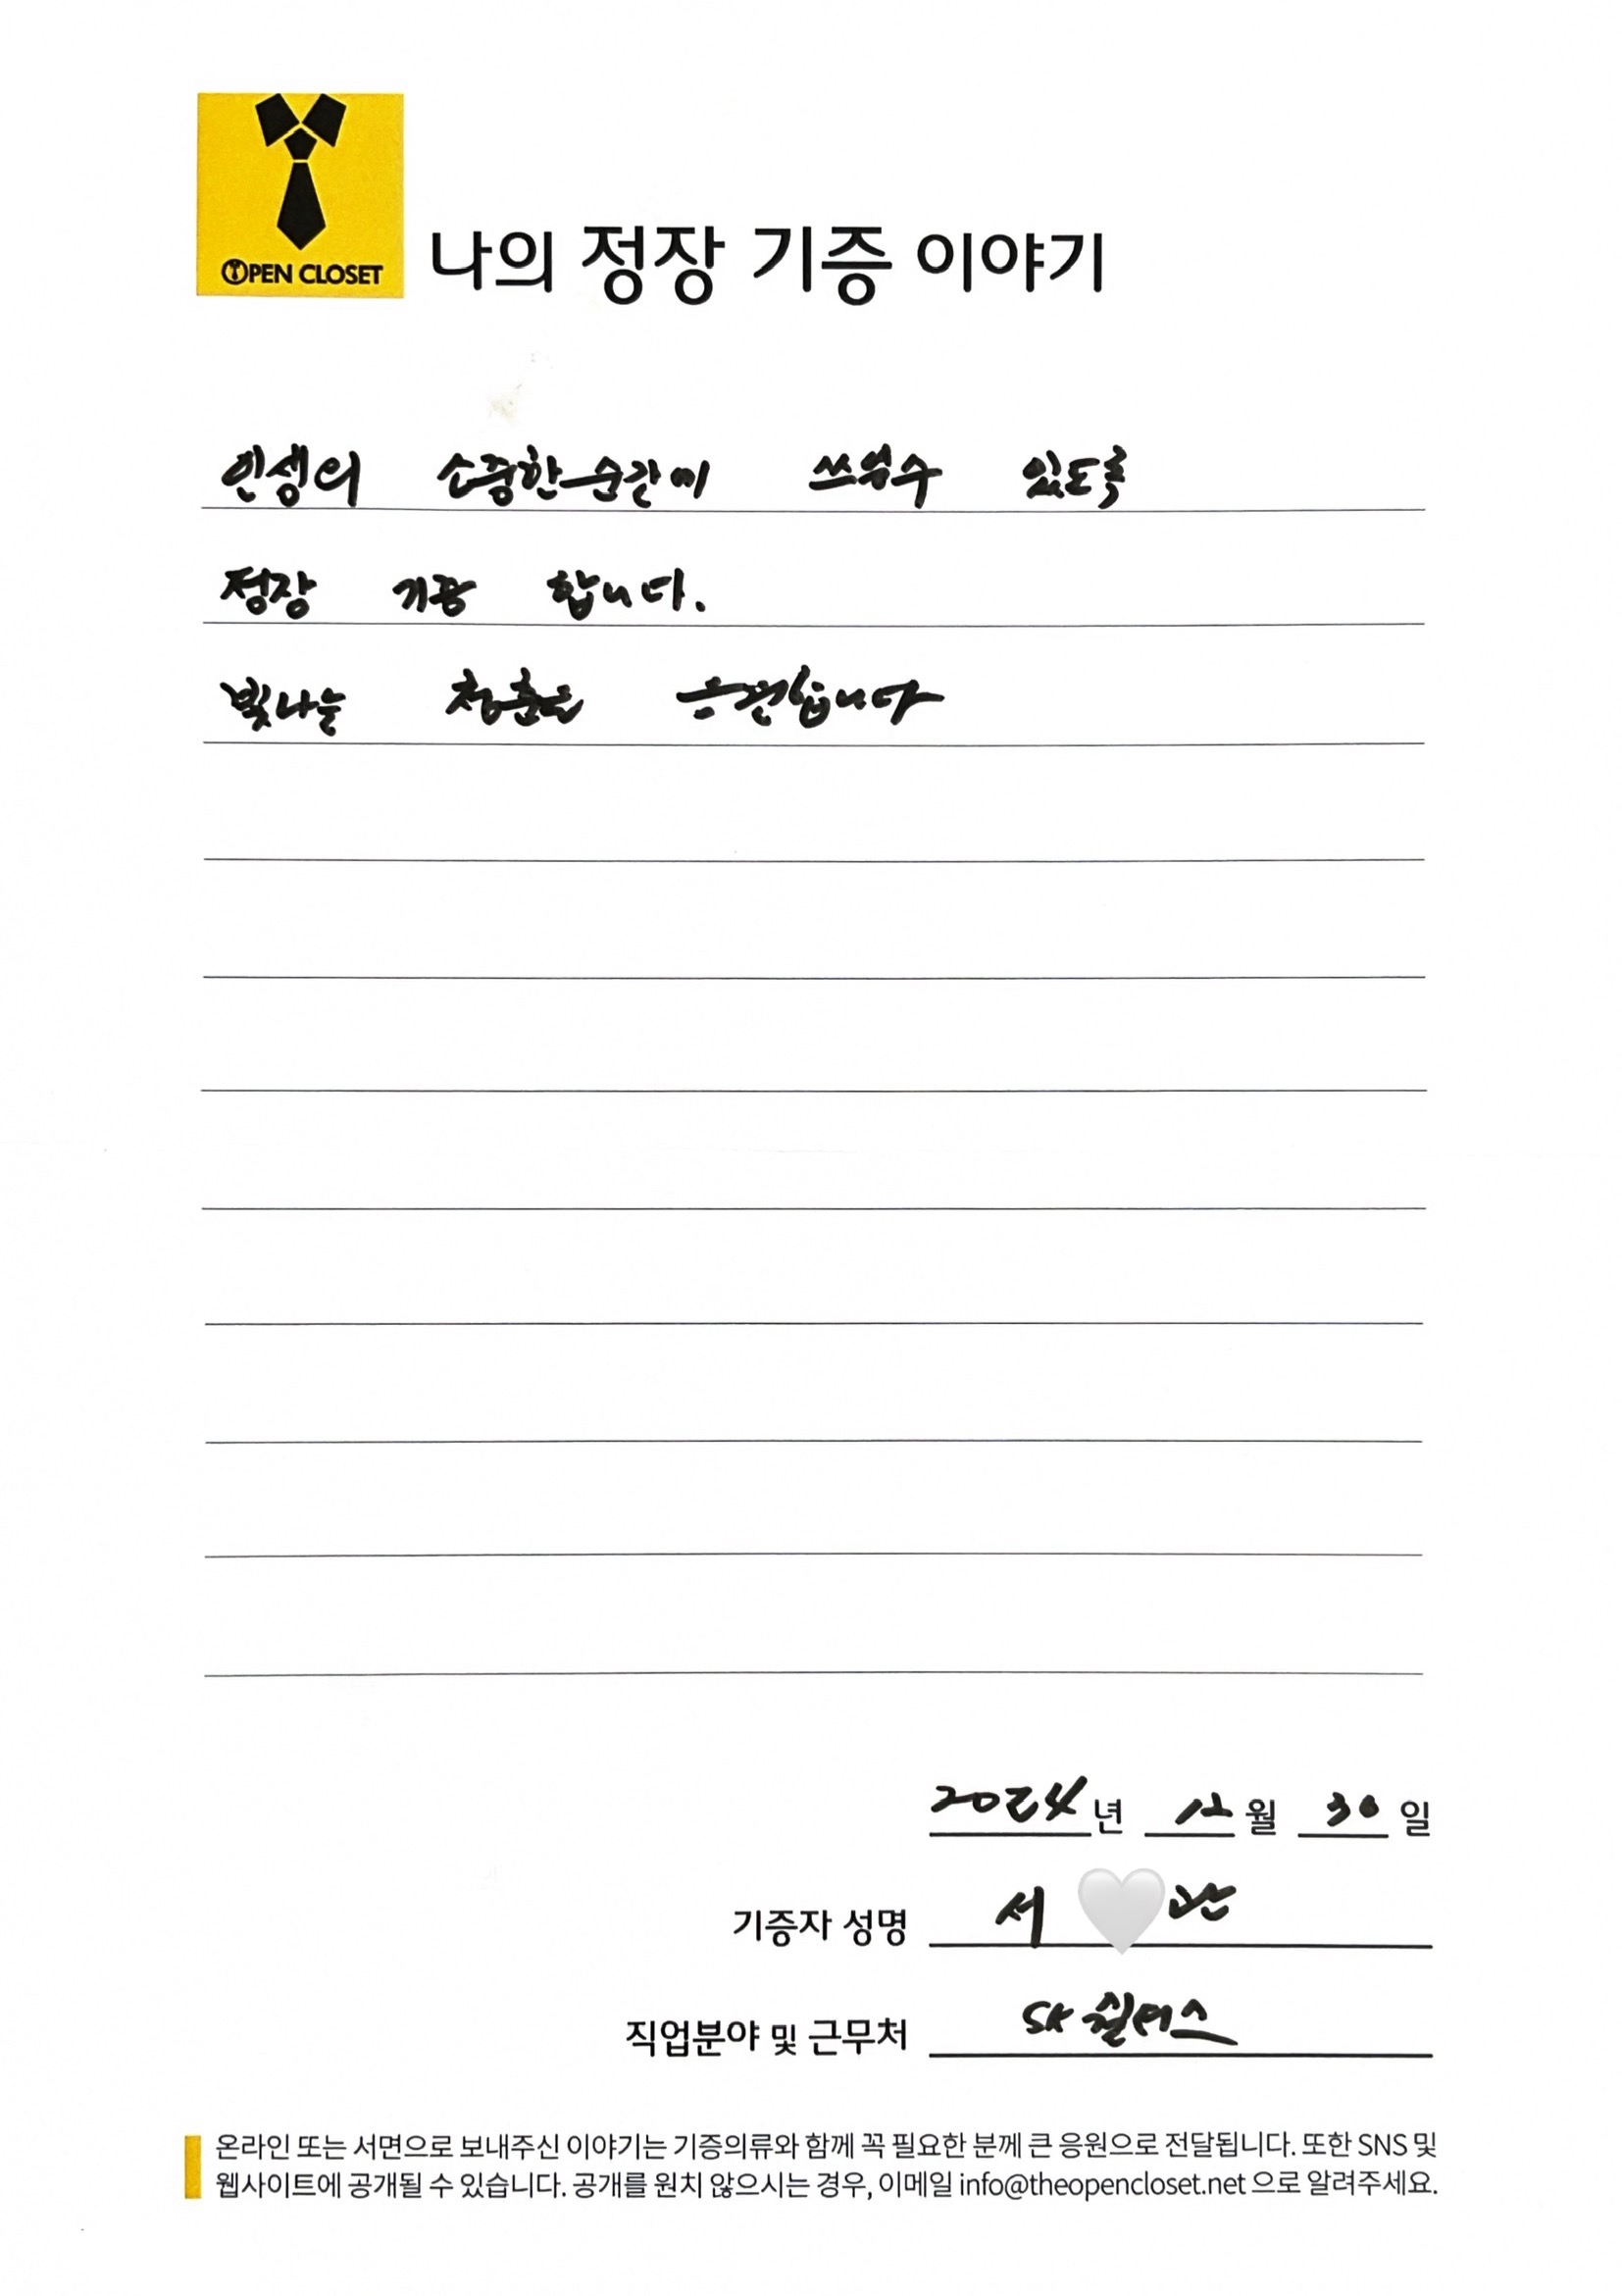 OPEN CLOSET
나의 정장 기증 이야기
인생의 소중한 순간에 쓰일수 있도록
정장 기증 합니다.
빛나는 청춘을 응원합니다
2024년 12월 30일
기증자 성명 서 관
직업분야 및 근무처 SK 쉴더스
온라인 또는 서면으로 보내주신 이야기는 기증의류와 함께 꼭 필요한 분께 큰 응원으로 전달됩니다. 또한 SNS 및
웹사이트에 공개될 수 있습니다. 공개를 원치 않으시는 경우, 이메일 info@theopencloset.net 으로 알려주세요.